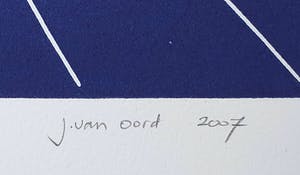 j.van oord 2007